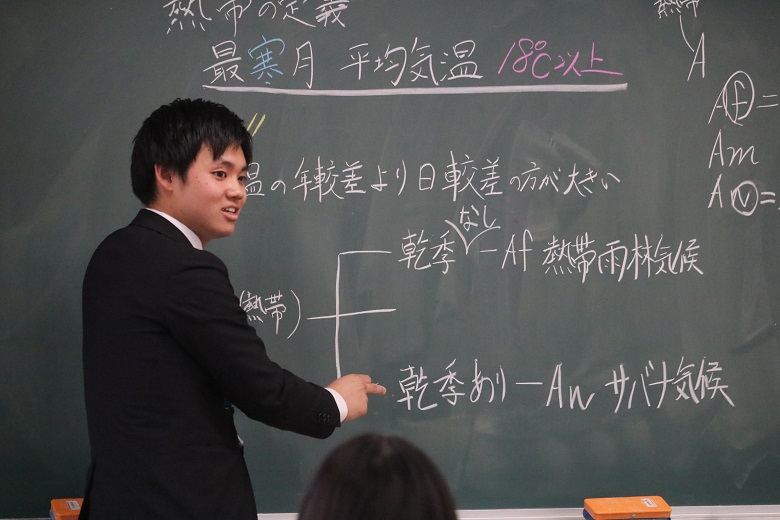 熱帯の定義
最寒月 平均気温 18℃以上
温の年較差より日較差の方が大きい
(熱帯)
乾季なし-Af 熱帯雨林気候
乾季あり-Aw サバナ気候
熱帯
A
Af=
Am
Aw=